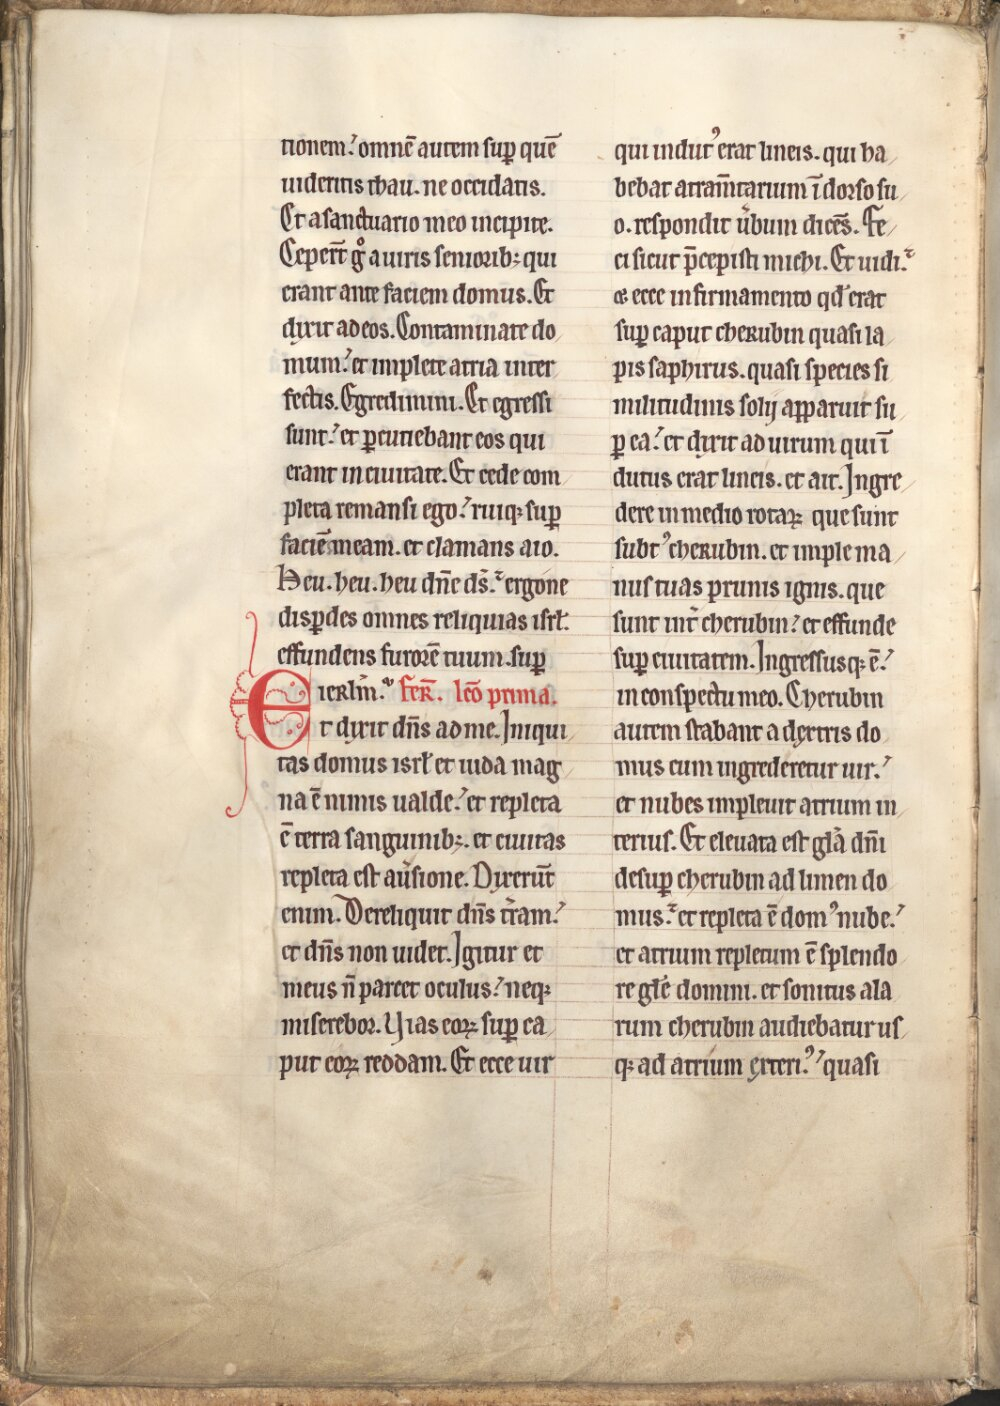 tionem. omnē autem sup̱ quē
uideritis thau. ne occidatis.
Et a sanctuario meo incipite.
Ceperr̄t gͦ a uiris seniorib; qui
erant ante faciem domus. Et
dixit ad eos. Contaminate do
mum. et implete atria inter
fectis. Egredimini. Et egressi
sunt. et ꝑcutiebant eos qui
erant in ciuitate. Et cede com
pleta remansi ego. ruiq; sup̱
faciē meam. et clamans aio.
Heu. heu. heu dn̄e ds̄. ergone
disꝑdes omnes reliquias isrł.
effundens furorē tuum. sup̱
ierlm̄. fer̄. lcō prima.
Et dixit dn̄s ad me. Iniqui
tas domus isrł et iuda mag
na ē nimis ualde. et repleta
ē terra sanguinib;. et ciuitas
repleta est au̾sione. Dixerūt
enim. Dereliquit dn̄s t̾ram.
et dn̄s non uidet. Igitur et
meus n̄ parcet oculus. neq;
miserebor. Uias eoꝝ sup̱ ca
put eoꝝ reddam. Et ecce uir
qui indutꝰ erat lineis. qui ha
bebat atram̄tarium ī dorso su
o. respondit u̾bum dicēs. Fe
ci sicut p̄cepisti michi. Et uidi.
⁊ ecce in firmamento qd̄ erat
sup̱ caput cherubin quasi la
pis saphirus. quasi species si
militudinis solij apparuit su
ꝑ ea. et dixit ad uirum qui ī
dutus erat lineis. et ait. Ingre
dere in medio rotaꝝ que sunt
subtꝰ cherubin. et imple ma
nus tuas prunis ignis. que
sunt int̾ cherubin. et effunde
sup̱ ciuitatem. Ingressusq; ē.
in conspectu meo. Cherubin
autem stabant a dextris do
mus cum ingrederetur uir.
et nubes impleuit atrium in
terius. Et eleuata est glā dn̄i
desup̱ cherubin ad limen do
mus. et repleta ē domꝰ nube.
et atrium repletum ē splendo
re glē domini. et sonitus ala
rum cherubin audiebatur us
q; ad atrium exteriꝰ. quasi